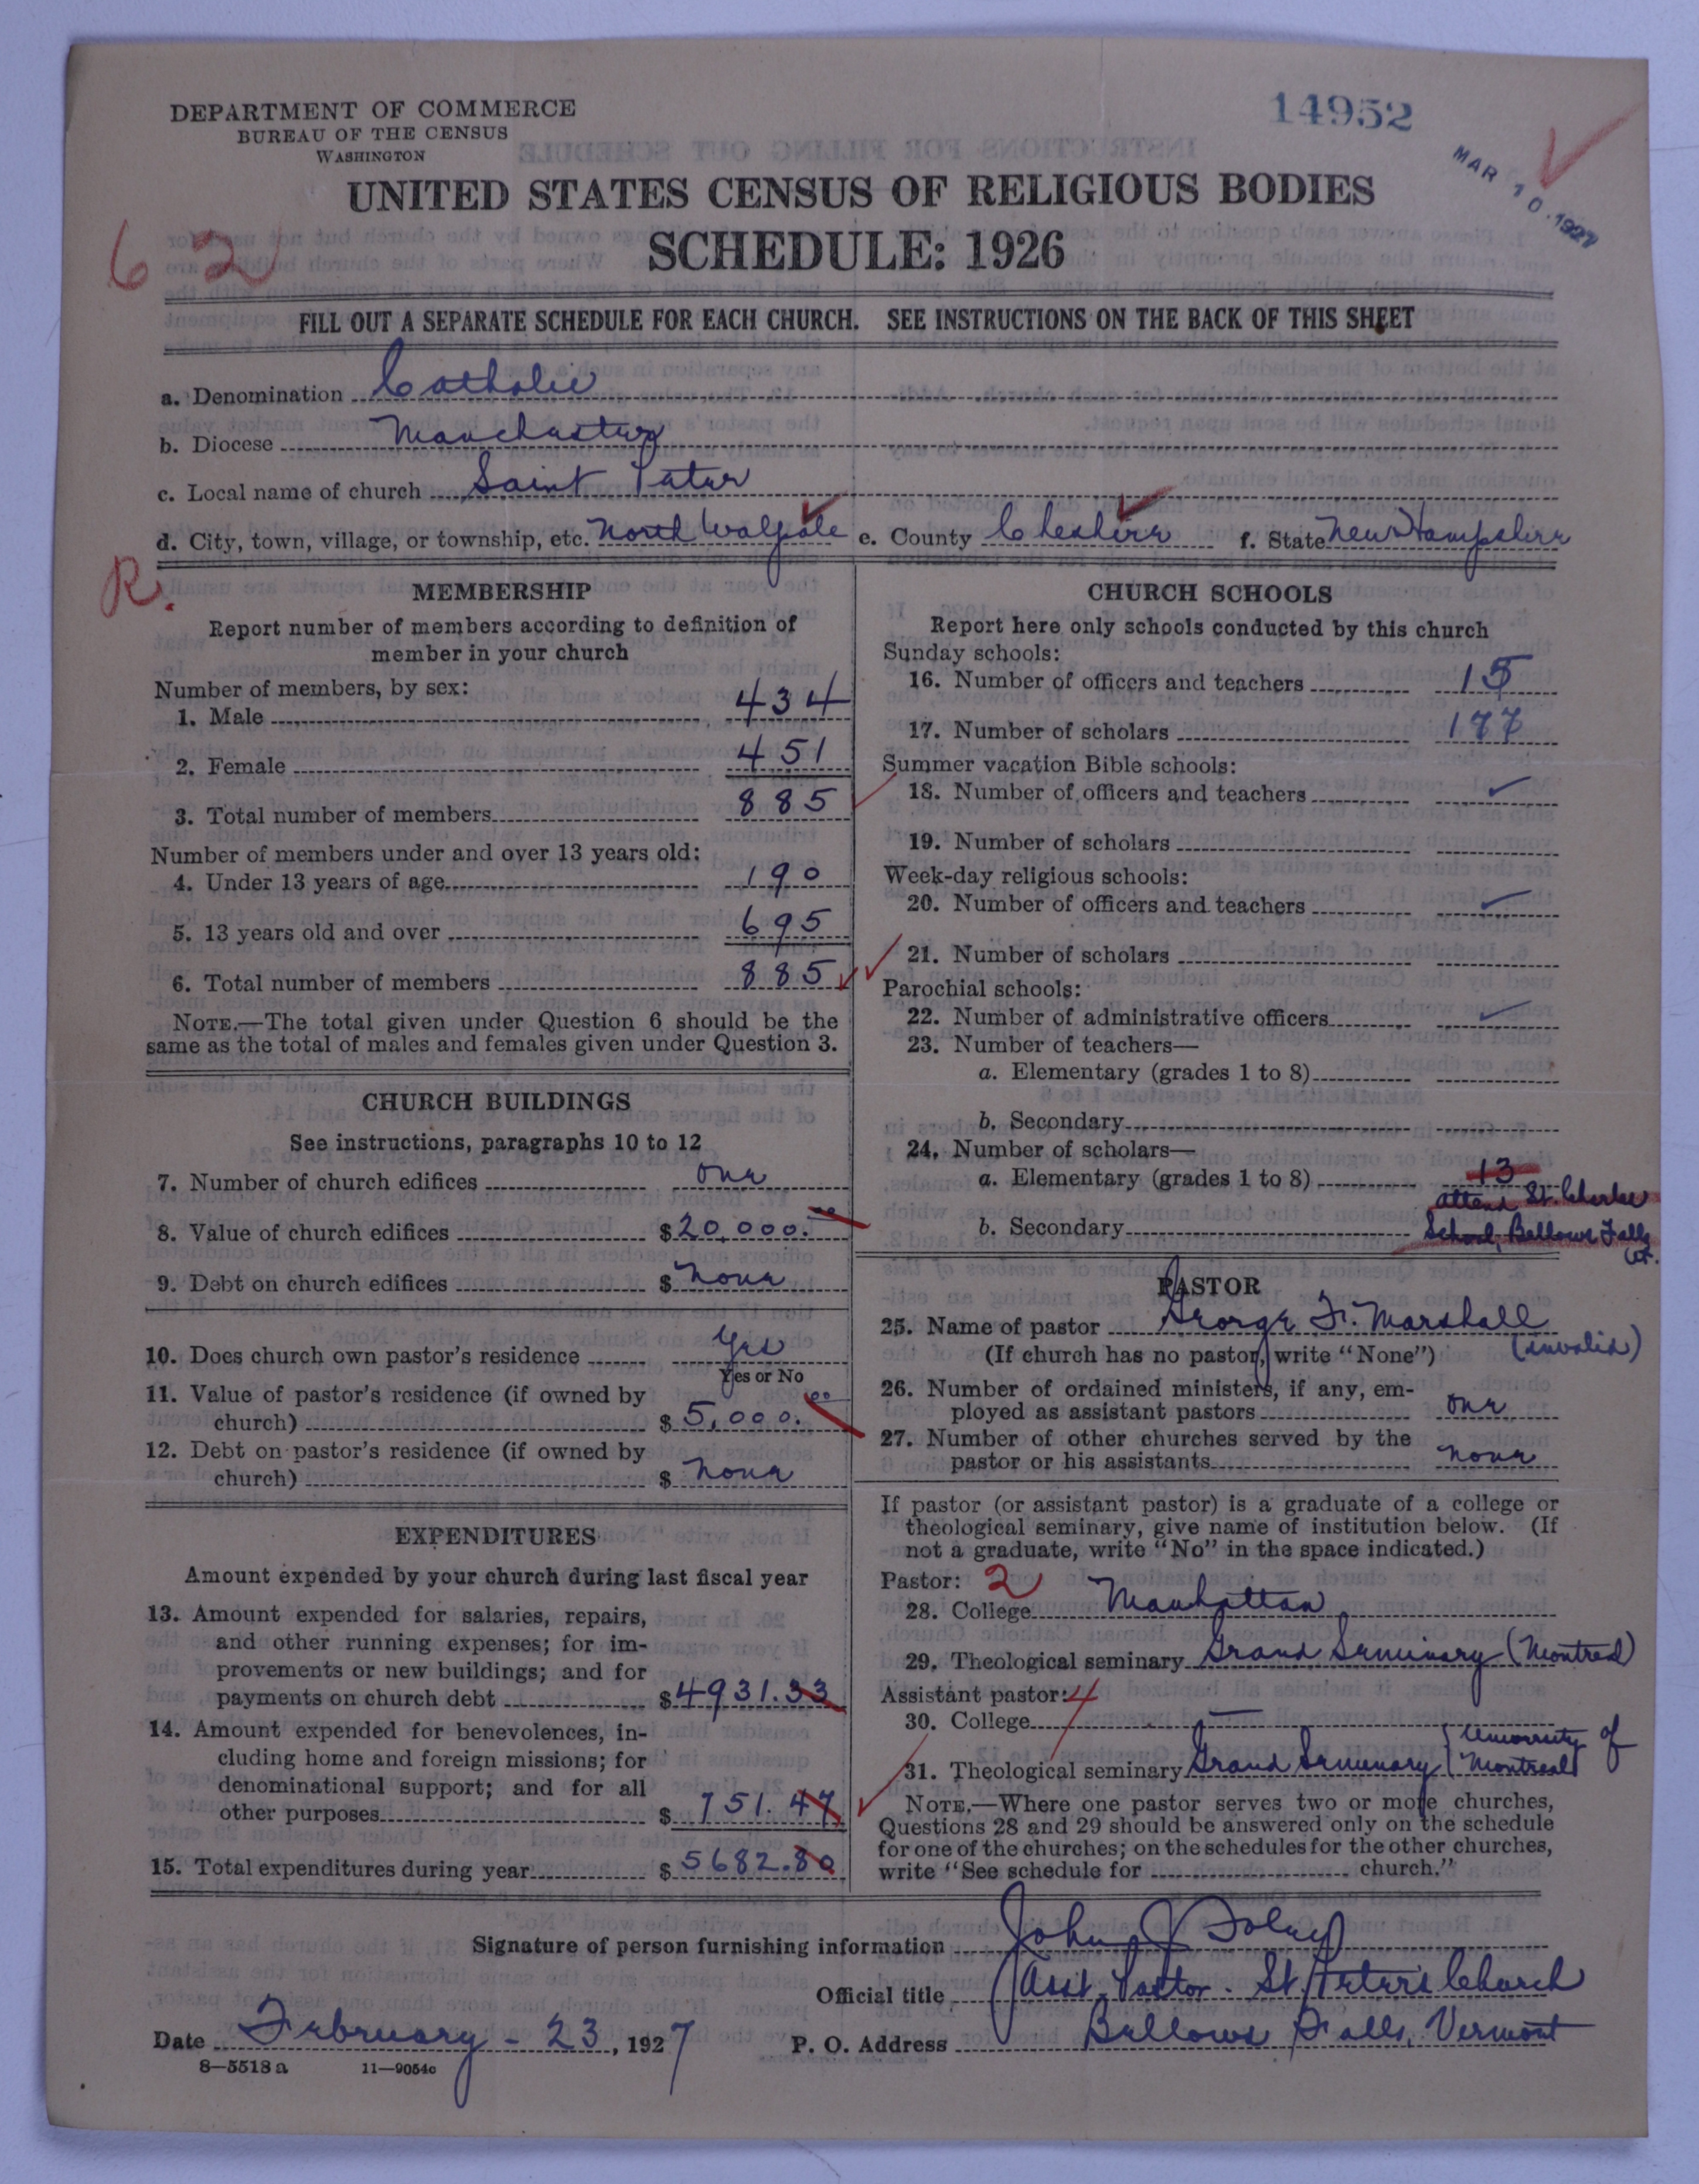 DEPARTMENT OF COMMERCE
BUREAU OF THE CENSUS
WASHINGTON
14952
MAR 10 1927
UNITED STATES CENSUS OF RELIGIOUS BODIES
SCHEDULE: 1926
62
FILL OUT A SEPARATE SCHEDULE FOR EACH CHURCH. SEE INSTRUCTIONS ON THE BACK OF THIS SHEET
a. Denomination Catholic
b. Diocese Manchester
c. Local name of church Saint Peter
d. City, town, village, or township, etc. North Walpole e. County Cheshire f. State New Hampshire
R.
MEMBERSHIP
Report number of members according to definition of
member in your church
Number of members, by sex:
1. Male 434
2. Female 451
3. Total number of members 885
Number of members under and over 13 years old:
4. Under 13 years of age 190
5. 13 years old and over 695
6. Total number of members 885
NOTE.—The total given under Question 6 should be the
same as the total of males and females given under Question 3.
CHURCH BUILDINGS
See instructions, paragraphs 10 to 12
7. Number of church edifices one
8. Value of church edifices $20,000.00
9. Debt on church edifices $ none
10. Does church own pastor's residence Yes
Yes or No
11. Value of pastor's residence (if owned by
church) $ 5,000.00
12. Debt on pastor's residence (if owned by
church) $ none
EXPENDITURES
Amount expended by your church during last fiscal year
13. Amount expended for salaries, repairs,
and other running expenses; for im-
provements or new buildings; and for
payments on church debt $4931.33
14. Amount expended for benevolences, in-
cluding home and foreign missions; for
denominational support; and for all
other purposes $ 751.47
15. Total expenditures during year $ 5682.80
CHURCH SCHOOLS
Report here only schools conducted by this church
Sunday schools:
16. Number of officers and teachers 15
17. Number of scholars 177
Summer vacation Bible schools:
18. Number of officers and teachers
19. Number of scholars
Week-day religious schools:
20. Number of officers and teachers
21. Number of scholars
Parochial schools:
22. Number of administrative officers
23. Number of teachers—
a. Elementary (grades 1 to 8)
b. Secondary
24. Number of scholars—
a. Elementary (grades 1 to 8) 13
attend St. Charles
b. Secondary School, Bellows Falls
Vt.
PASTOR
25. Name of pastor George F. Marshall
(If church has no pastor, write "None") (invalid)
26. Number of ordained ministers, if any, em-
ployed as assistant pastors one
27. Number of other churches served by the
pastor or his assistants none
If pastor (or assistant pastor) is a graduate of a college or
theological seminary, give name of institution below. (If
not a graduate, write "No" in the space indicated.)
Pastor: 2
28. College Manhattan
29. Theological seminary Grand Seminary (Montreal)
Assistant pastor: 4
30. College —
31. Theological seminary Grand Seminary (University of
Montreal)
NOTE.—Where one pastor serves two or more churches,
Questions 28 and 29 should be answered only on the schedule
for one of the churches; on the schedules for the other churches,
write "See schedule for church."
Signature of person furnishing information John J Foley
Official title Asst. Pastor. St Peters Church
Date February - 23, 1927 P. O. Address Bellows Falls, Vermont
8—5518 a 11—9054c